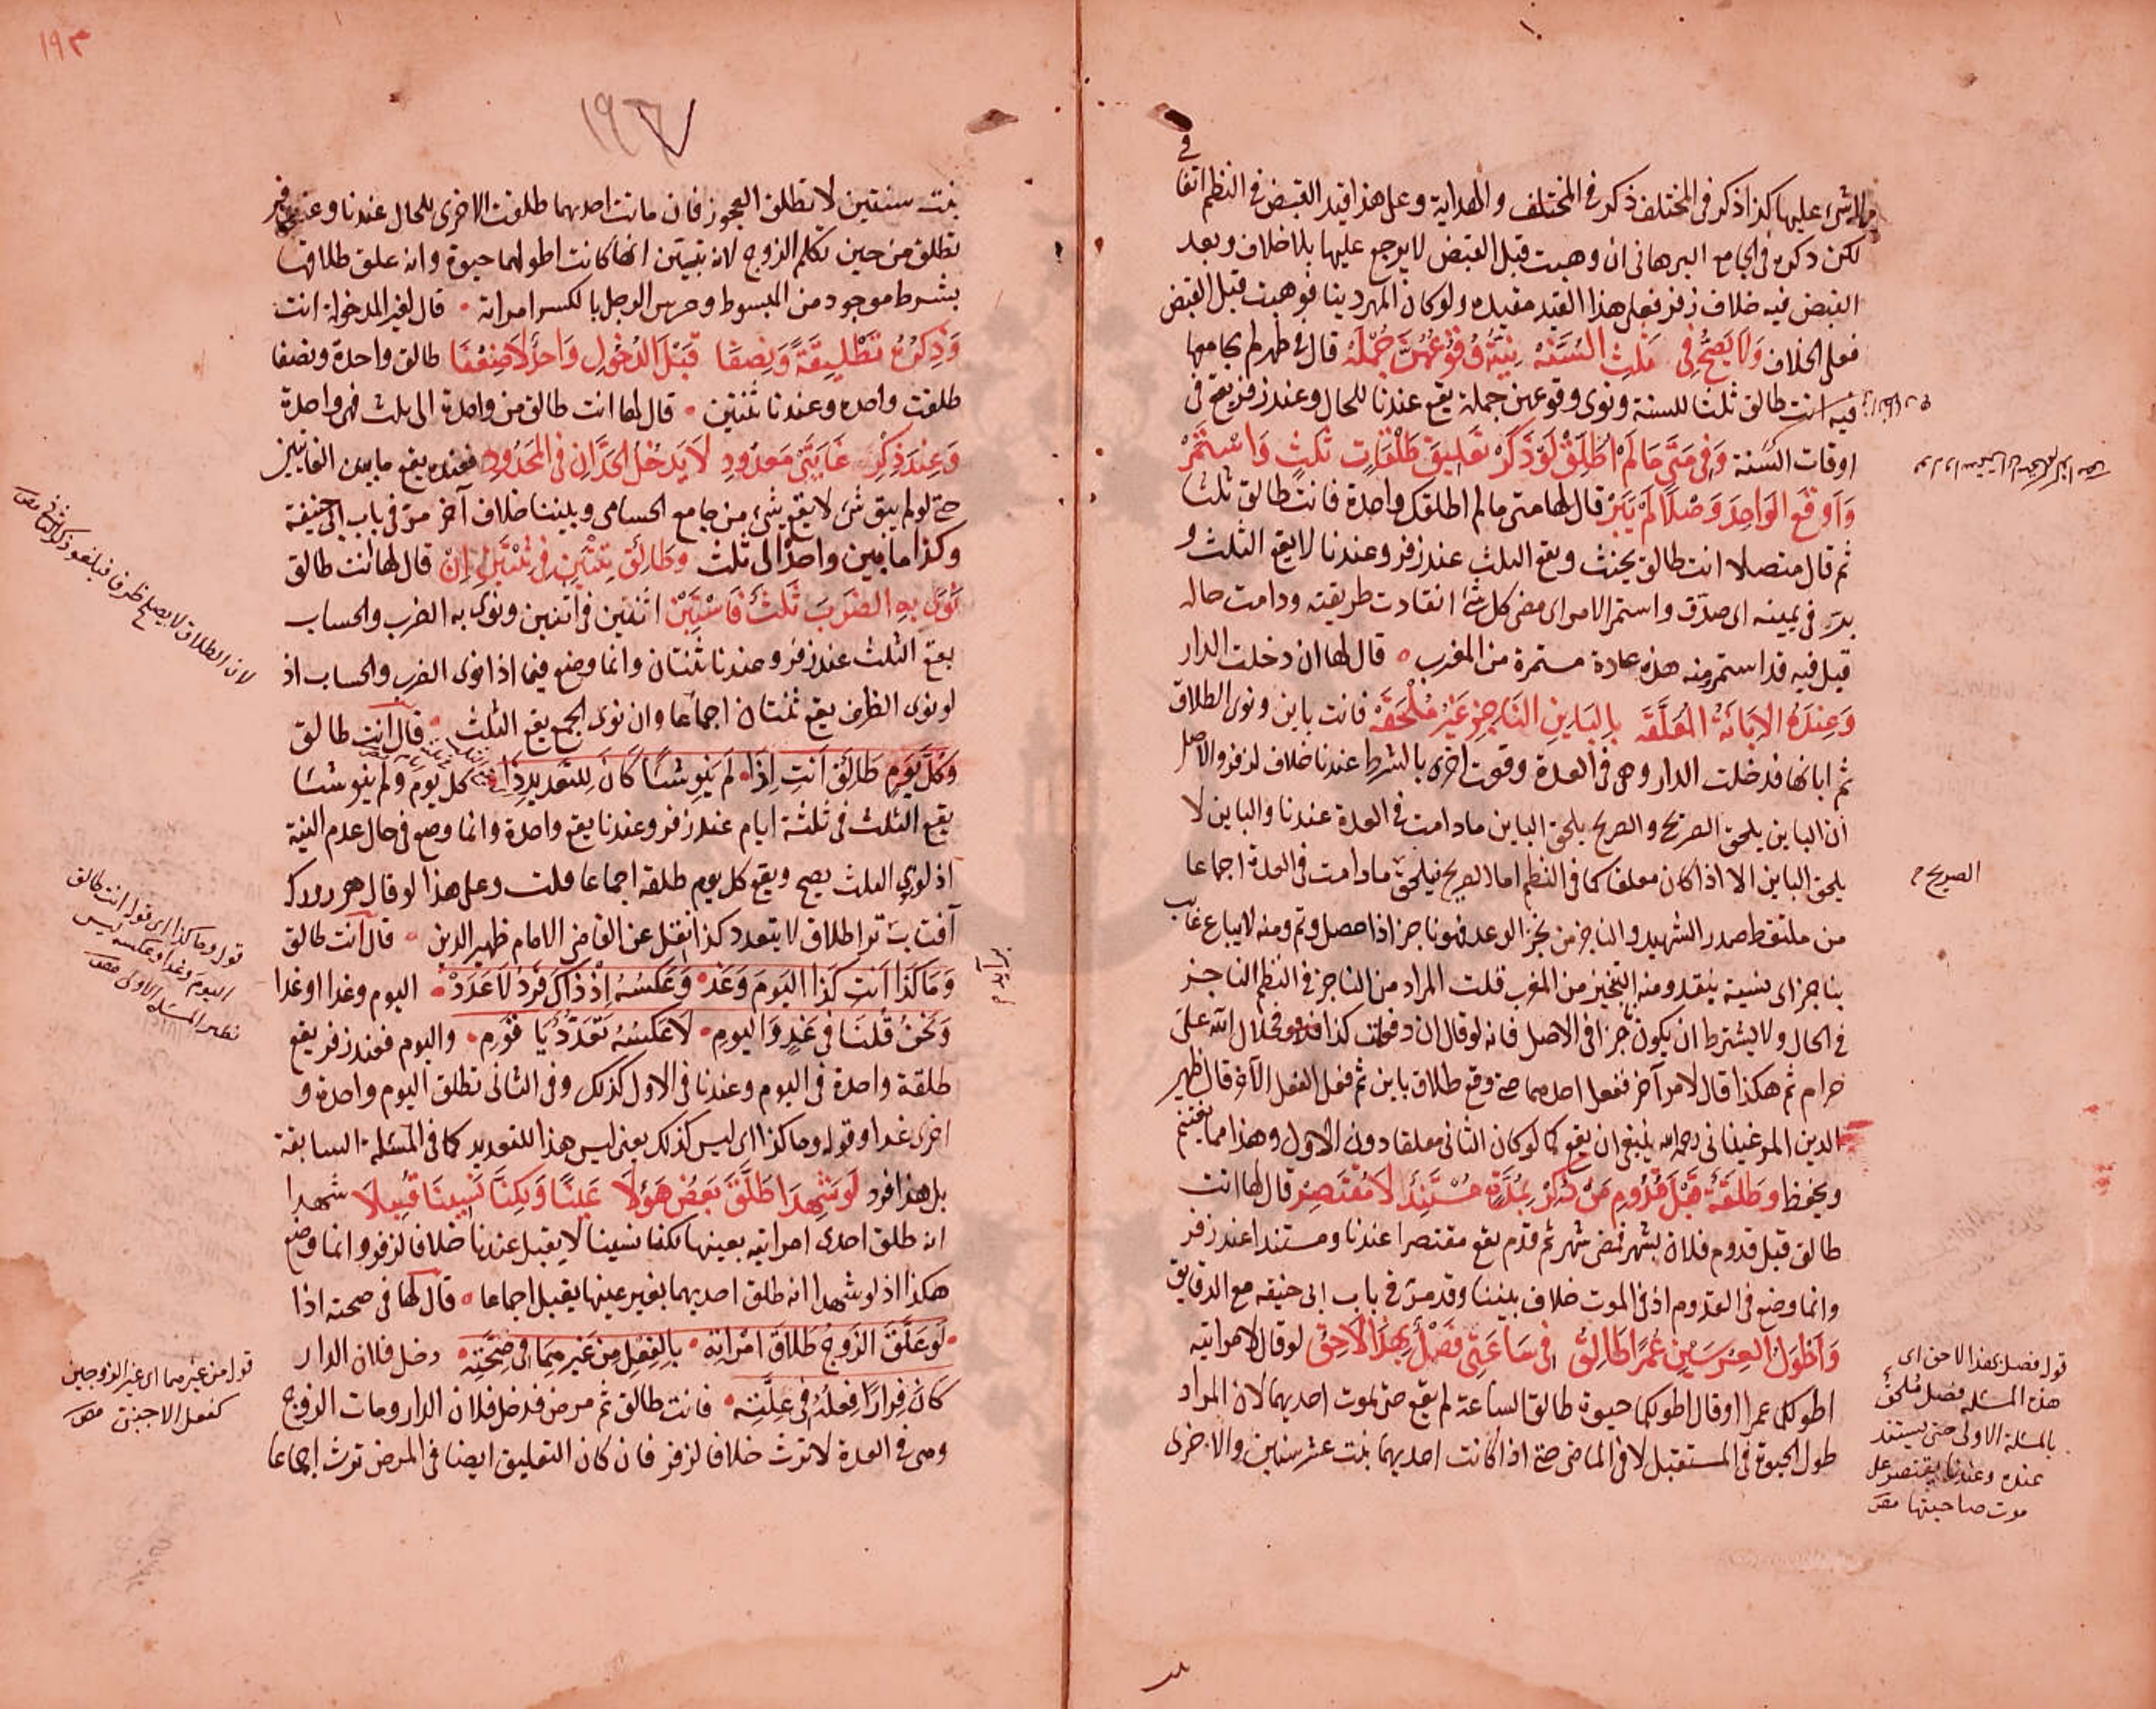 في
مالا شئ عليها كذا ذكر في المختلف ذكر في المختلف والهداية وعلى هذا قيد القبض في النظم اتفا
لكن ذكره في الجامع البرهاني ان وهبت قبل القبض لا يرجع عليها بلا خلاف وبعد
القبض فيه خلاف زفر فعلى هذا القيد مفيد ولو كان المهر دينا فوهبت قبل القبض
فعلى الخلاف وَلَا يَصِحُّ فِي ثَلٰثِ السُّنَّهْ نِيَّةُ وُقُوْعِهِنَّ جُمْلَهْ قال في طهر لم يجامعها
فيه انت طالق ثلثا للسنة ونوى وقوعهن جملة يقع عندنا للحال وعند زفر يقع في
اوقات السنة وَفِي مَتَى مَا لَمْ اُطَلِّقْ لَوْ ذَكَرْ تَعْلِيقَ طَلْقَاتٍ ثَلٰثٍ وَاسْتَمَرّْ
وَاَوْقَعَ الْوَاحِدَ وَصْلًا لَمْ يَبَرّْ قال لها متى ما لم اطلقك واحدة فانت طالق ثلثا
ثم قال متصلا انت طالق يحنث ويقع الثلث عند زفر وعندنا لا يقع الثلث و
بر في يمينه اى صدق واستمر الامر اى مضى كل شئ انقادت طريقته ودامت حاله
قيل فيه قد استمر ومنه هذه عادة مستمرة من المغرب قال لها ان دخلت الدار
وَعِنْدَهُ الْاِبَانَةُ الْمُعَلَّقَهْ بِالْبَايِنِ النَّاجِزِ غَيْرُ مُلْحَقَهْ فانت باين ونوى الطلاق
ثم ابانها فدخلت الدار وهى في العدة وقعت اخرى بالشرط عندنا خلافا لزفر والاصل
ان الباين يلحق الصريح والصريح يلحق الباين ما دامت في العدة عندنا والباين لا
يلحق الباين الا اذا كان معلقا كما في النظم اما الصريح فيلحق ما دامت في العدة اجماعا
من ملتقط صدر الشهيد والناجز من نجز الوعد فهو ناجز اذا حصل وتم ومنه لا يباع غايب
بناجز اى نسية بنقد ومنه التنجيز من المغرب قلت المراد من الناجز في النظم الناجز
في الحال ولا يشترط ان يكون ناجزا في الاصل فانه لو قال ان فعلت كذا فحلال الله على
حرام ثم هكذا قال لامر آخر ففعل احدهما حتى وقع طلاق باين ثم فعل الفعل الآخر قال ظهير
الدين المرغيناني رحمه الله ينبغى ان يقع كما لو كان الثاني معلقا دون الاول وهذا مما يغتنم
ويحفظ وَطَلْقَةٌ قَبْلَ قُدُومِ مَنْ ذُكِرْ بِمُدَّةٍ مُسْتَنِدٌ لَا مُقْتَصِرْ قال لها انت
طالق قبل قدوم فلان بشهر فمضى شهر ثم قدم يقع مقتصرا عندنا ومستندا عند زفر
وانما وضع في القدوم اذ في الموت خلاف بيننا وقد مر في باب ابى حنيفة مع الدقايق
وَاَطْوَلُ الْعِرْسَيْنِ عُمْرًا طَالِقٌ فِي سَاعَتِي فَصْلٌ بِهٰذَا لَاحِقٌ لو قال لامراتيه
اطولكما عمرا او قال اطولكما حيوة طالق الساعة لم يقع حتى تموت احديهما لان المراد
طول الحيوة في المستقبل لا في الماضى حتى اذا كانت احديهما بنت عشر سنين والاخرى
الصريح م
قوله فصل بهذا لاحق اى
هذه المسئلة فصل ملحق
بالمسئلة الاولى حتى يستند
عنده وعندنا يقتصر على
موت صاحبتها
١٩٣
بنت سنتين لا تطلق العجوز فان ماتت احديهما طلقت الاخرى للحال عندنا وعند زفر
تطلق من حين تكلم الزوج لانه تبين انها كانت اطولهما حيوة وانه علق طلاقها
بشرط موجود من المبسوط وعرس الرجل بالكسر امراته قال لغير المدخولة انت
وَذِكْرُهُ تَطْلِيقَةً وَنِصْفَا قَبْلَ الدُّخُولِ وَاحِدٌ لَا ضِعْفَا طالق واحدة ونصفا
طلقت واحدة وعندنا ثنتين قال لها انت طالق من واحدة الى ثلث فهى واحدة
وَعِنْدَ ذِكْرِ غَايَتَيْ مَعْدُودِ لَا يَدْخُلُ الْحَدَّانِ فِي الْمَحْدُودِ فعنده يقع ما بين الغايتين
حتى لو لم يبق شئ لا يقع شئ من جامع الحسامى وبيننا خلاف آخر مر في باب ابى حنيفة
وكذا ما بين واحد الى ثلث وَطَالِقٌ ثِنْتَيْنِ فِي ثِنْتَيْنِ اِنْ قال لها انت طالق
نَوَى بِهِ الضَّرْبَ ثَلٰثٌ فَاسْتَبِنْ اثنتين في اثنتين ونوى به الضرب والحساب
يقع الثلث عند زفر وعندنا ثنتان وانما وضع فيما اذا نوى الضرب والحساب اذ
لو نوى الظرف يقع ثنتان اجماعا وان نوى الجمع يقع الثلث قال انت طالق
وَكُلَّ يَوْمٍ طَالِقٌ اَنْتِ اِذَا لَمْ يَنْوِ شَيْئًا كَانَ لِلتَّعْدِيدِ ذَا كل يوم ولم ينو شيئا
يقع الثلث في ثلثة ايام عند زفر وعندنا يقع واحدة وانما وضع في حال عدم النية
اذ لو نوى الثلث يصح ويقع كل يوم طلقة اجماعا قلت وعلى هذا لو قال هر روز كه
آفتاب بر آيد ترا طلاق لا يتعدد كذا نقل عن القاضى الامام ظهير الدين قال انت طالق
وَمَا كَذَا اَنْتِ كَذَا الْيَوْمَ وَغَدْ وَعَكْسُهُ اِذْ ذَاكَ فَرْدٌ لَا عَدَدْ اليوم وغدا او غدا
وَنَحْنُ قُلْنَا فِي غَدٍ وَالْيَوْمِ لَا عَكْسُهُ تَعَدُّدٌ يَا قَوْمِ واليوم فعند زفر يقع
طلقة واحدة في اليوم وعندنا في الاول كذلك وفي الثانى تطلق اليوم واحدة و
اخرى غدا وقوله وما كذا اى ليس كذلك يعنى ليس هذا للتعديد كما في المسئلة السابقة
بل هذا فرد لَوْ شَهِدَا طَلَّقَ بَعْضَ هٰؤُلَا عَيْنًا وَلٰكِنَّا نَسِينَا قُبِلَا شهدا
انه طلق احدى امراتيه بعينها لكنا نسينا لا يقبل عندنا خلافا لزفر وانما وضع
هكذا اذ لو شهدا انه طلق احديهما بغير عينها يقبل اجماعا قال لها في صحته اذا
لَوْ عَلَّقَ الزَّوْجُ طَلَاقَ امْرَاَتِهْ بِالْفِعْلِ مِنْ غَيْرِهِمَا فِي صِحَّتِهْ دخل فلان الدار
كَانَ فِرَارًا فِعْلُهُ فِي عِلَّتِهْ فانت طالق ثم مرض فدخل فلان الدار ومات الزوج
وهى في العدة لا ترث خلافا لزفر فان كان التعليق ايضا في المرض ترث اجماعا
لان الطلاق لا يصلح ظرفا فيلغو ذكر الثانى
قوله وما كذا اى قوله انت طالق
اليوم وغدا وعكسه ليس
نظير المسئلة الاولى
بر آيد م
قوله من غيرهما اى غير الزوجين
كفعل الاجنبى